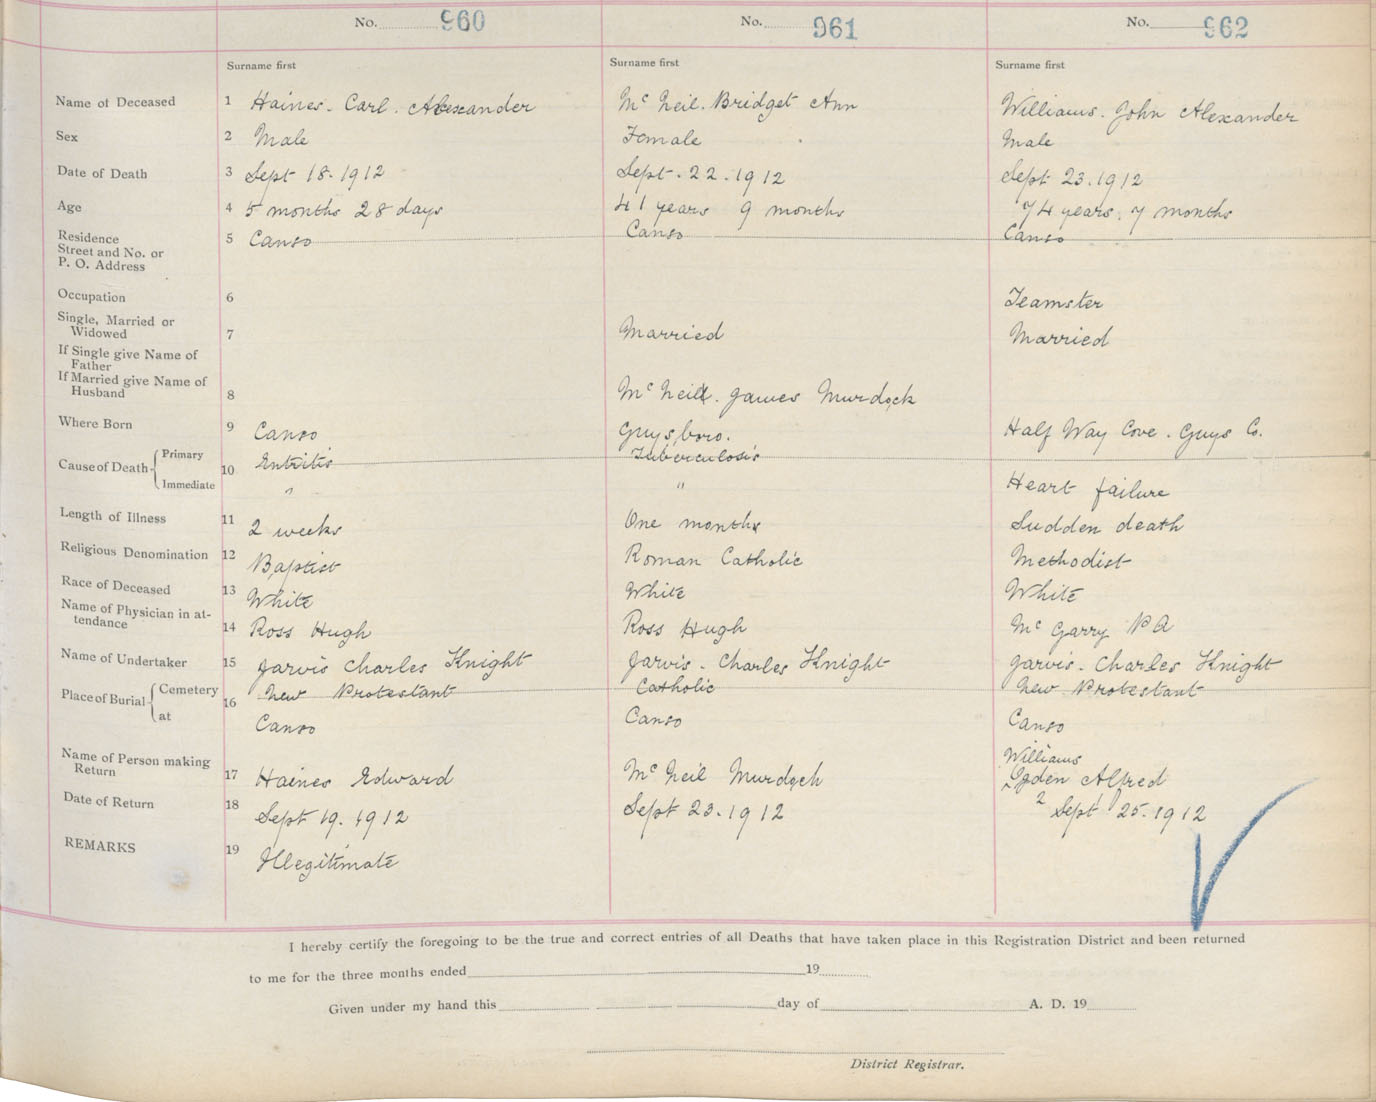 No. 960 No. 961 No. 962
Surname first Surname first Surname first
Name of Deceased 1 Haines. Carl. Alexander Mc Neil. Bridget Ann Williams. John Alexander
Sex 2 Male Female Male
Date of Death 3 Sept 18. 1912 Sept. 22. 1912 Sept 23. 1912
Age 4 5 months 28 days 41 years 9 months 74 years. 7 months
Residence 5 Canso Canso Canso
Street and No. or
P. O. Address
Occupation 6 Teamster
Single, Married or
Widowed 7 Married Married
If Single give Name of
Father
If Married give Name of
Husband 8 Mc Neil. James Murdock
Where Born 9 Canso Guysboro. Half Way Cove. Guys Co.
Cause of Death Primary 10 Entritis Tuberculosis
Immediate " " Heart failure
Length of Illness 11 2 weeks One month Sudden death
Religious Denomination 12 Baptist Roman Catholic Methodist
Race of Deceased 13 White White White
Name of Physician in at-
tendance 14 Ross Hugh Ross Hugh Mc Garry P A
Name of Undertaker 15 Jarvis Charles Knight Jarvis. Charles Knight Jarvis. Charles Knight
Place of Burial Cemetery 16 New Protestant Catholic New Protestant
at Canso Canso Canso
Name of Person making Williams
Return 17 Haines Edward Mc Neil Murdoch Ogden Alfred
Date of Return 18 Sept 19. 1912 Sept 23. 1912 2 Sept 25. 1912
REMARKS 19 Illegitimate
I hereby certify the foregoing to be the true and correct entries of all Deaths that have taken place in this Registration District and been returned
to me for the three months ended 19
Given under my hand this day of A. D. 19
District Registrar.